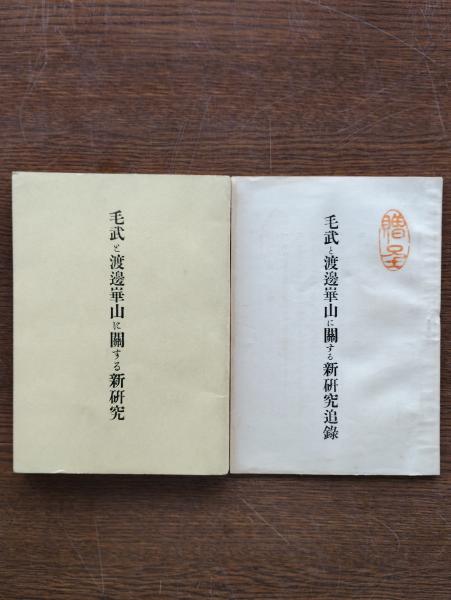 毛武と渡邊崋山に關する新研究
毛武と渡邊崋山に關する新研究追錄
贈呈